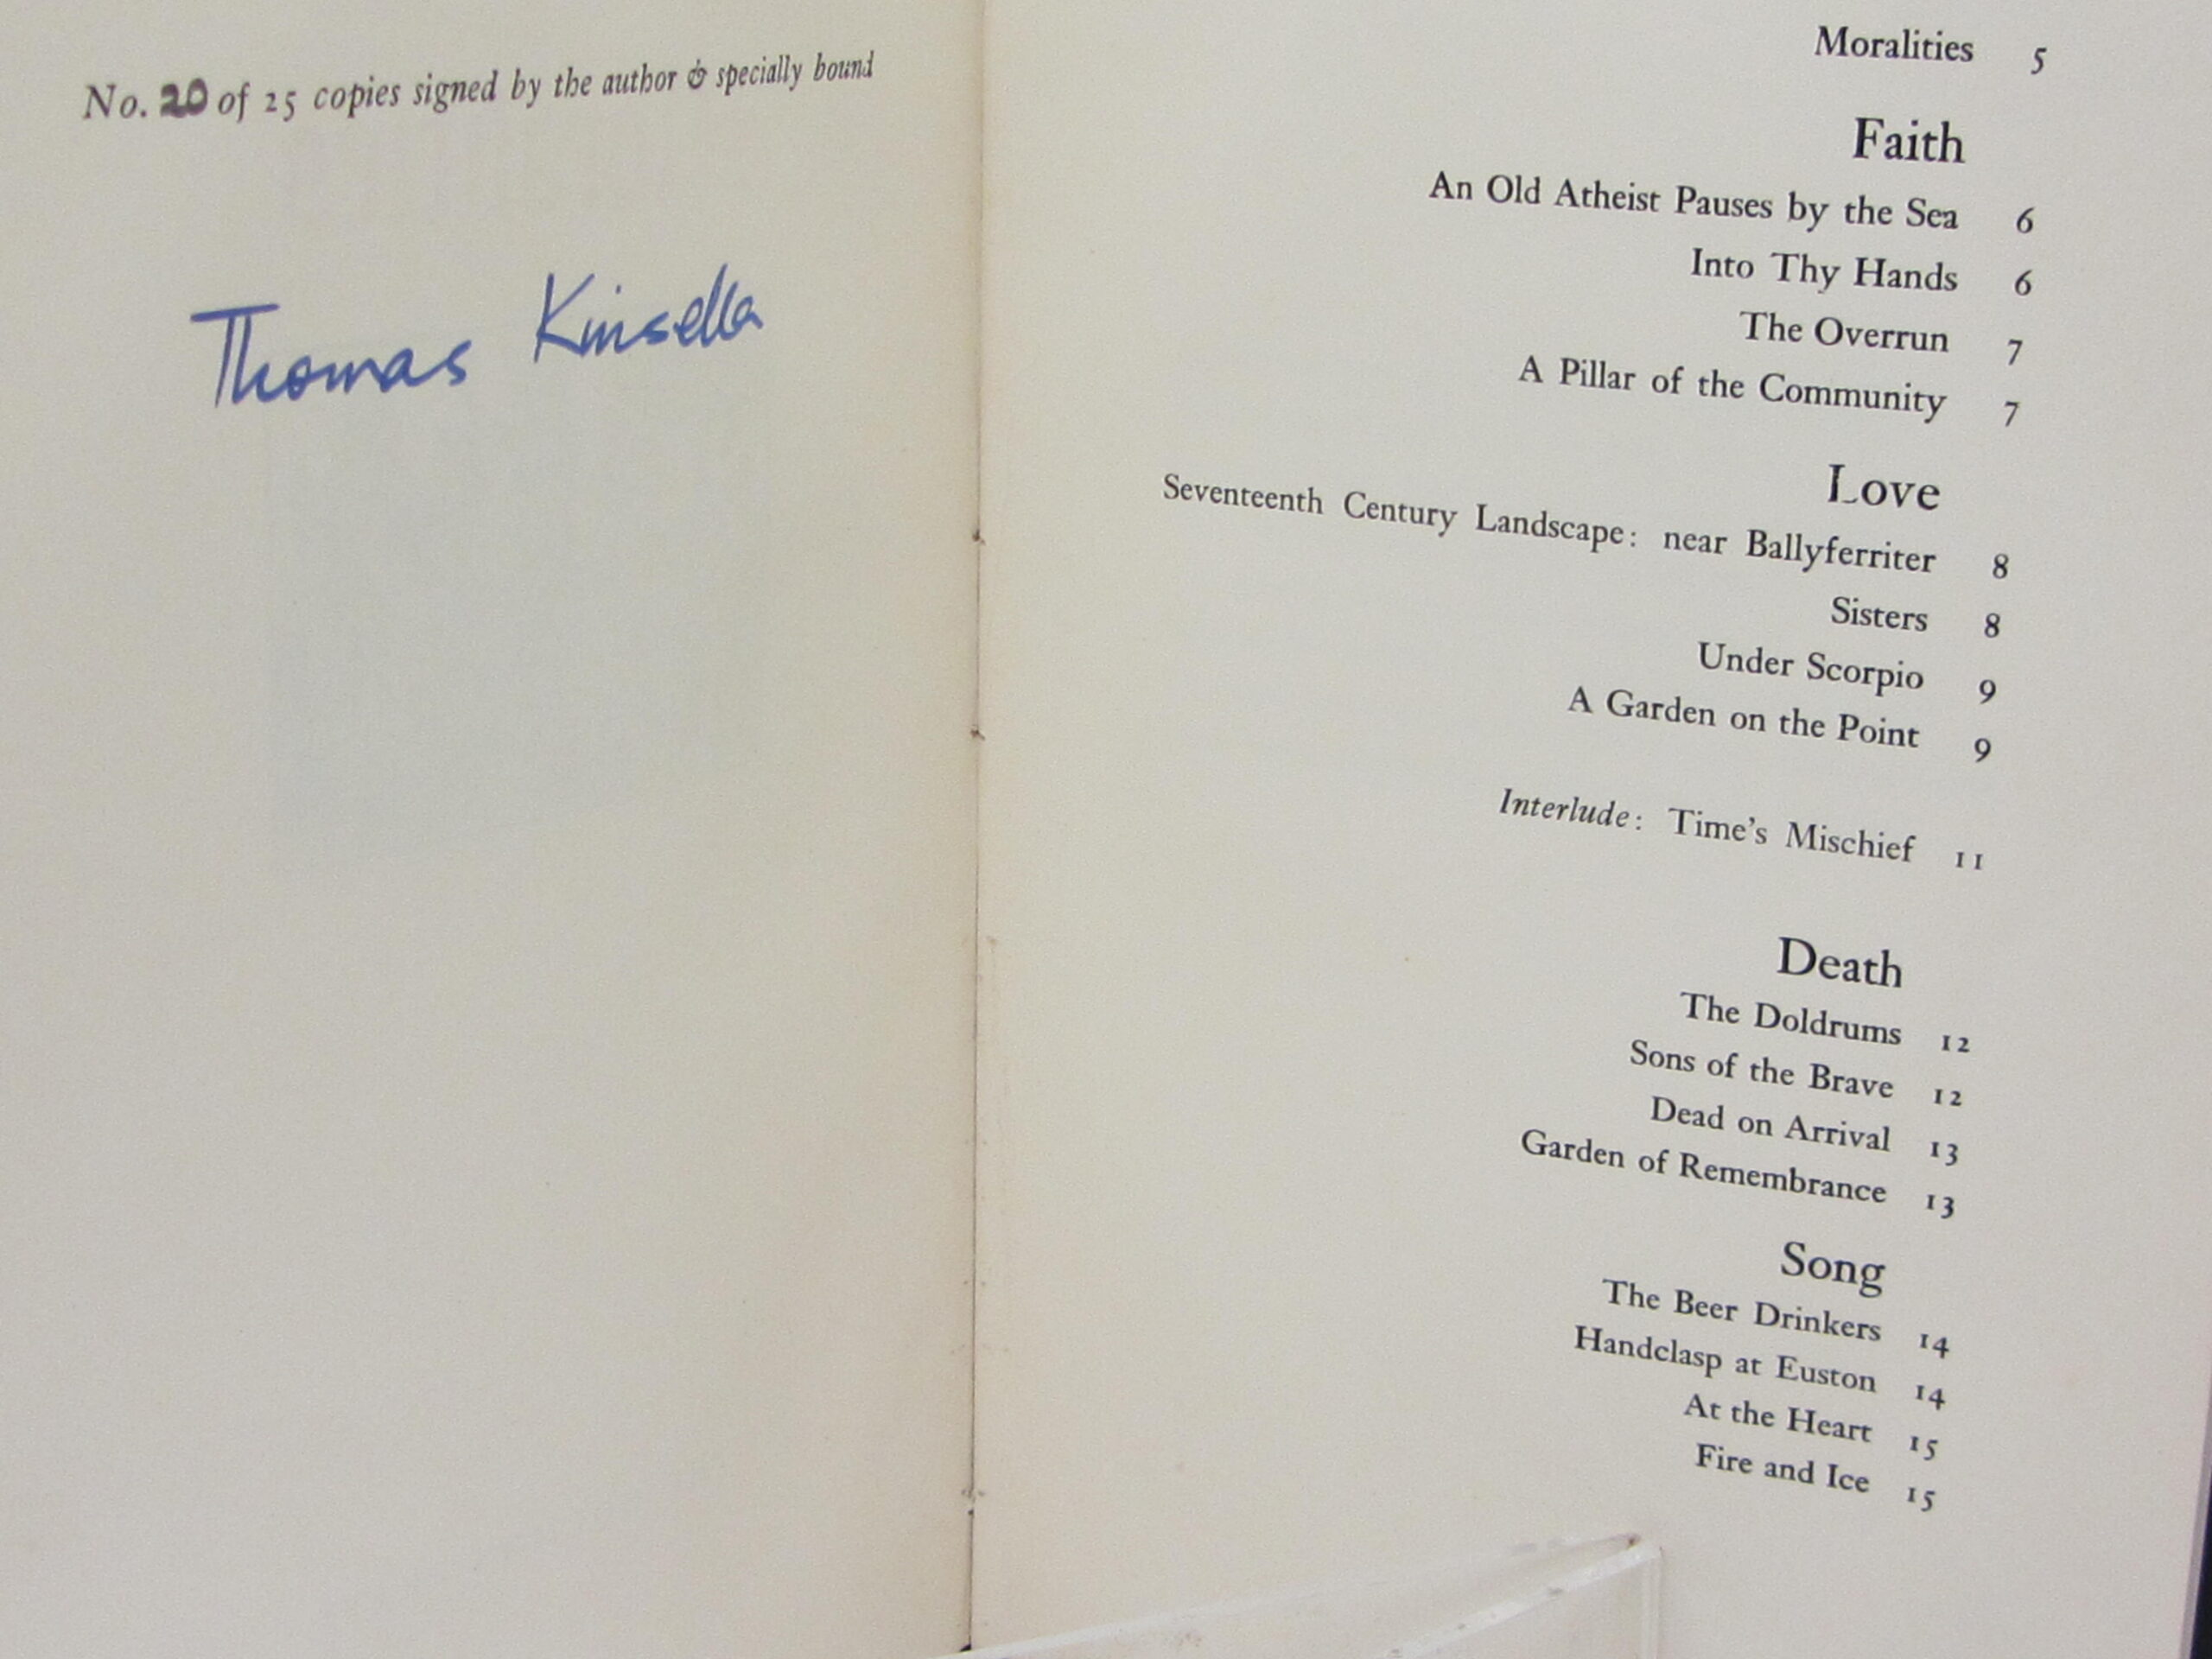 No. 20 of 25 copies signed by the author & specially bound
Thomas Kinsella
Moralities 5
Faith
An Old Atheist Pauses by the Sea 6
Into Thy Hands 6
The Overrun 7
A Pillar of the Community 7
Love
Seventeenth Century Landscape: near Ballyferriter 8
Sisters 8
Under Scorpio 9
A Garden on the Point 9
Interlude: Time's Mischief 11
Death
The Doldrums 12
Sons of the Brave 12
Dead on Arrival 13
Garden of Remembrance 13
Song
The Beer Drinkers 14
Handclasp at Euston 14
At the Heart 15
Fire and Ice 15